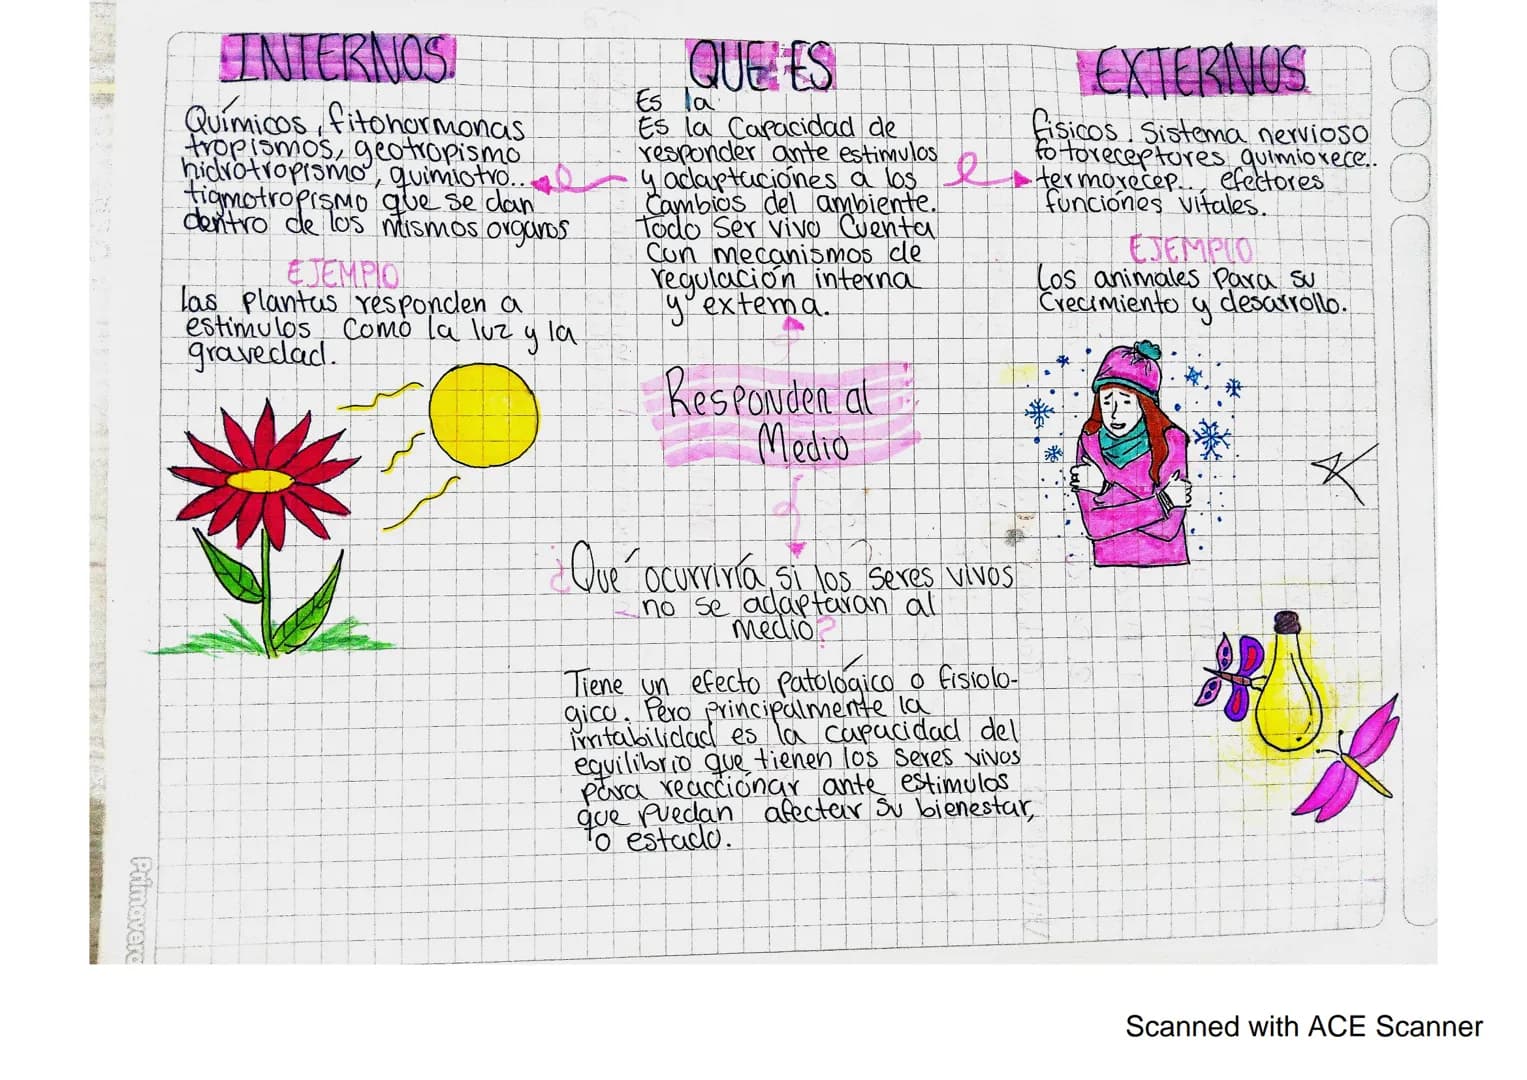 INTERNOS
Químicos, fitohormonas
tropismos, geotropismo
hidrotropismo, quimiotro...
tigmotropismo que se dan
dentro de los mismos organos
EJEMPlO
las plantas responden a
estimulos como la luz y la
gravedad.
QUE ES
Es la
Es la Capacidad de
responder ante estimulos
y adaptaciones a los
cambios del ambiente.
Todo Ser vivo Cuenta
Con mecanismos de
regulación interna
y externa.
EXTERNOS
físicos. Sistema nervioso
fotoreceptores quimiorece..
termorecep... efectores
funciónes vitales.
EJEMPlO
Los animales Para su
Crecimiento y desarrollo.
Responden al
Medio
¿Qué ocurriría si los seres vivos
no se adaptaran al
medio?
Tiene un efecto patológico o fisiolo-
gico. Pero principalmente la
irritabilidad es la capacidad del
equilibrio que tienen los seres vivos
para reacciónar ante estimulos
que puedan afectar su bienestar,
o estado.
Primavera
Scanned with ACE Scanner